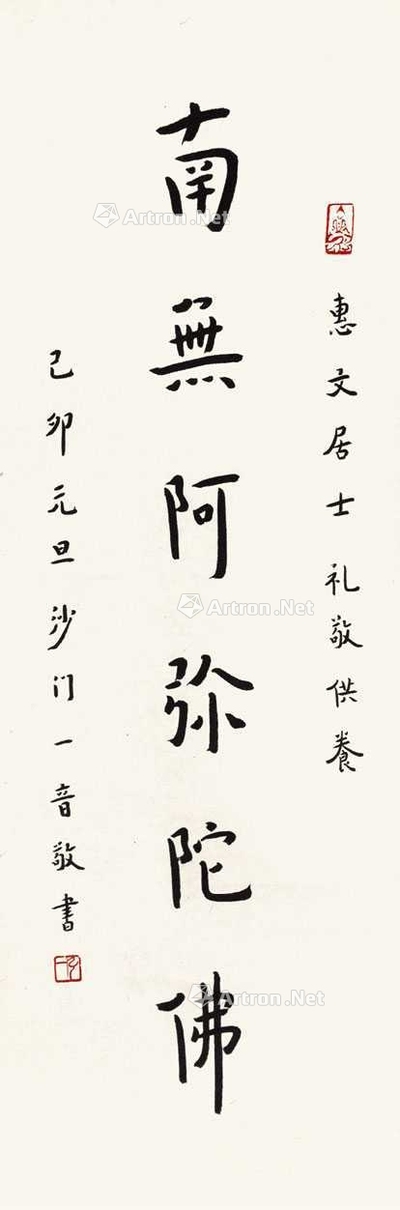 惠文居士 礼敬供養
南無阿弥陀佛
己卯元旦沙门一音敬書
Artron.Net
Artron.Net
Artron.Net